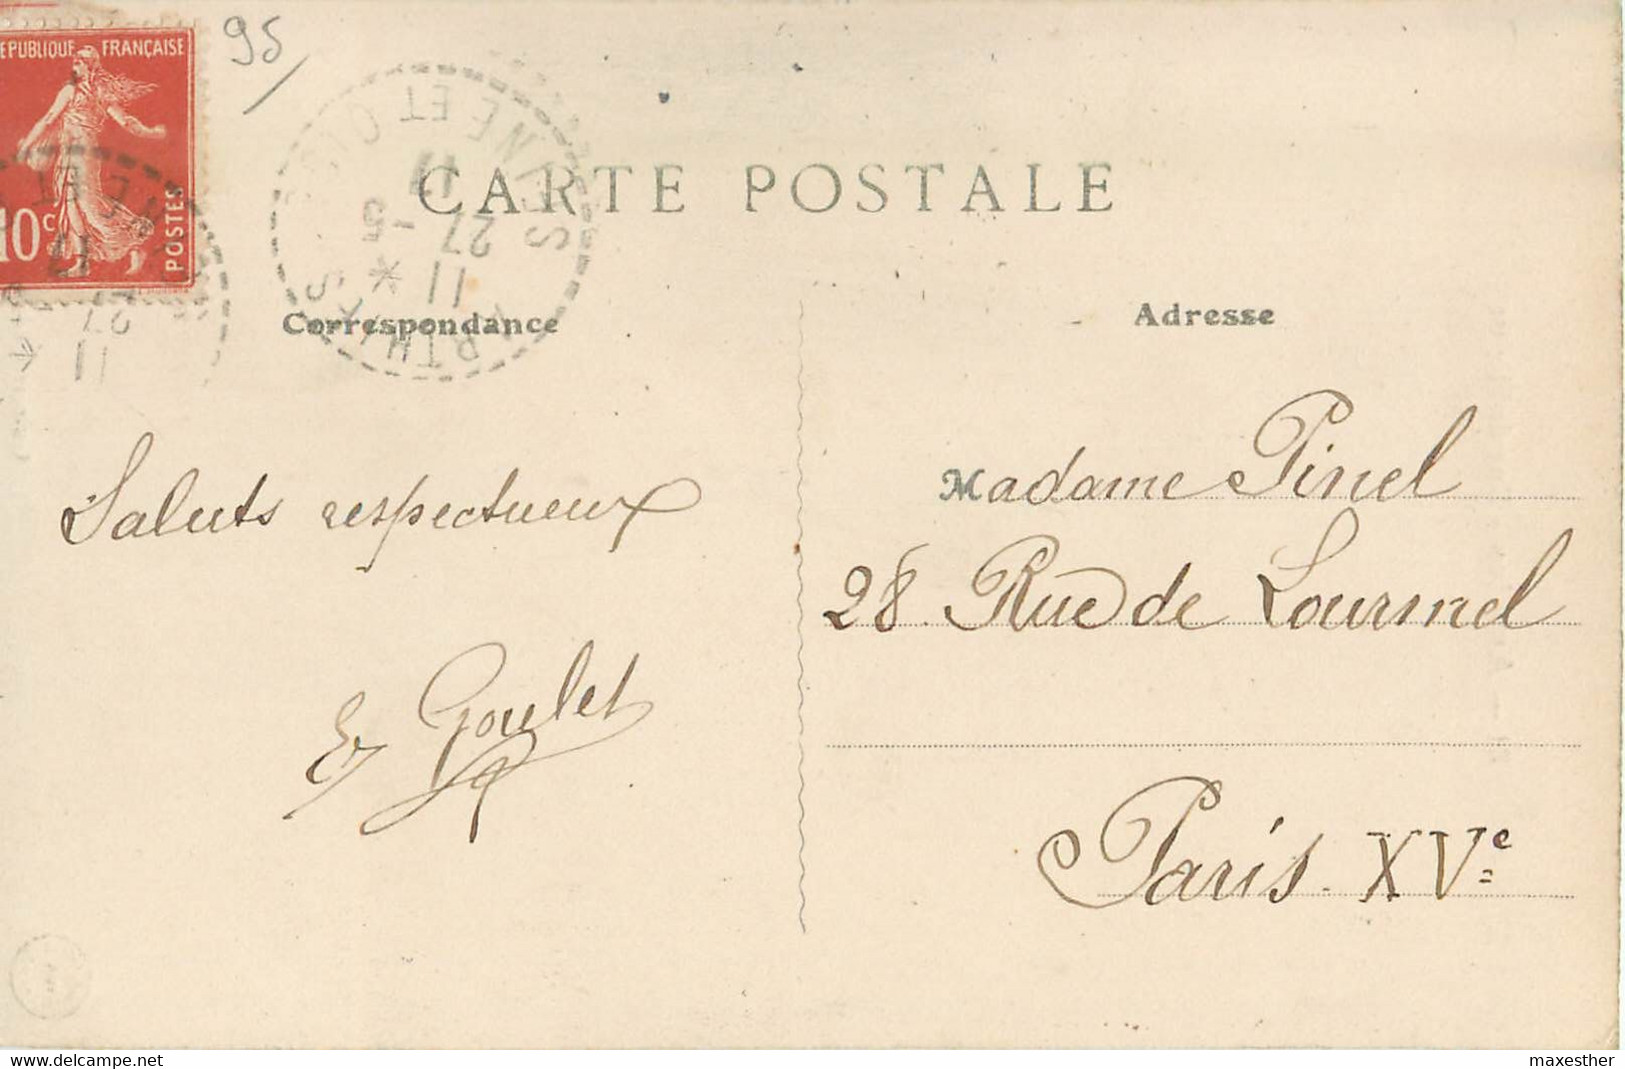 95
RÉPUBLIQUE FRANÇAISE
10c
POSTES
CARTE POSTALE
SEINE ET OISE
11
27 -5
11 *
Correspondance
Adresse
Saluts respectueux
E Goulet
Madame Pinel
28. Rue de Lourmel
Paris. XVe
Copyright © by delcampe.net
maxesther